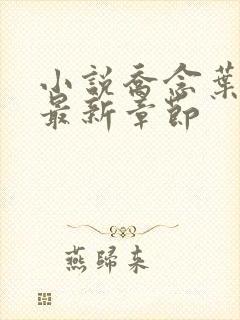 小說喬念葉
最新章節
燕歸來